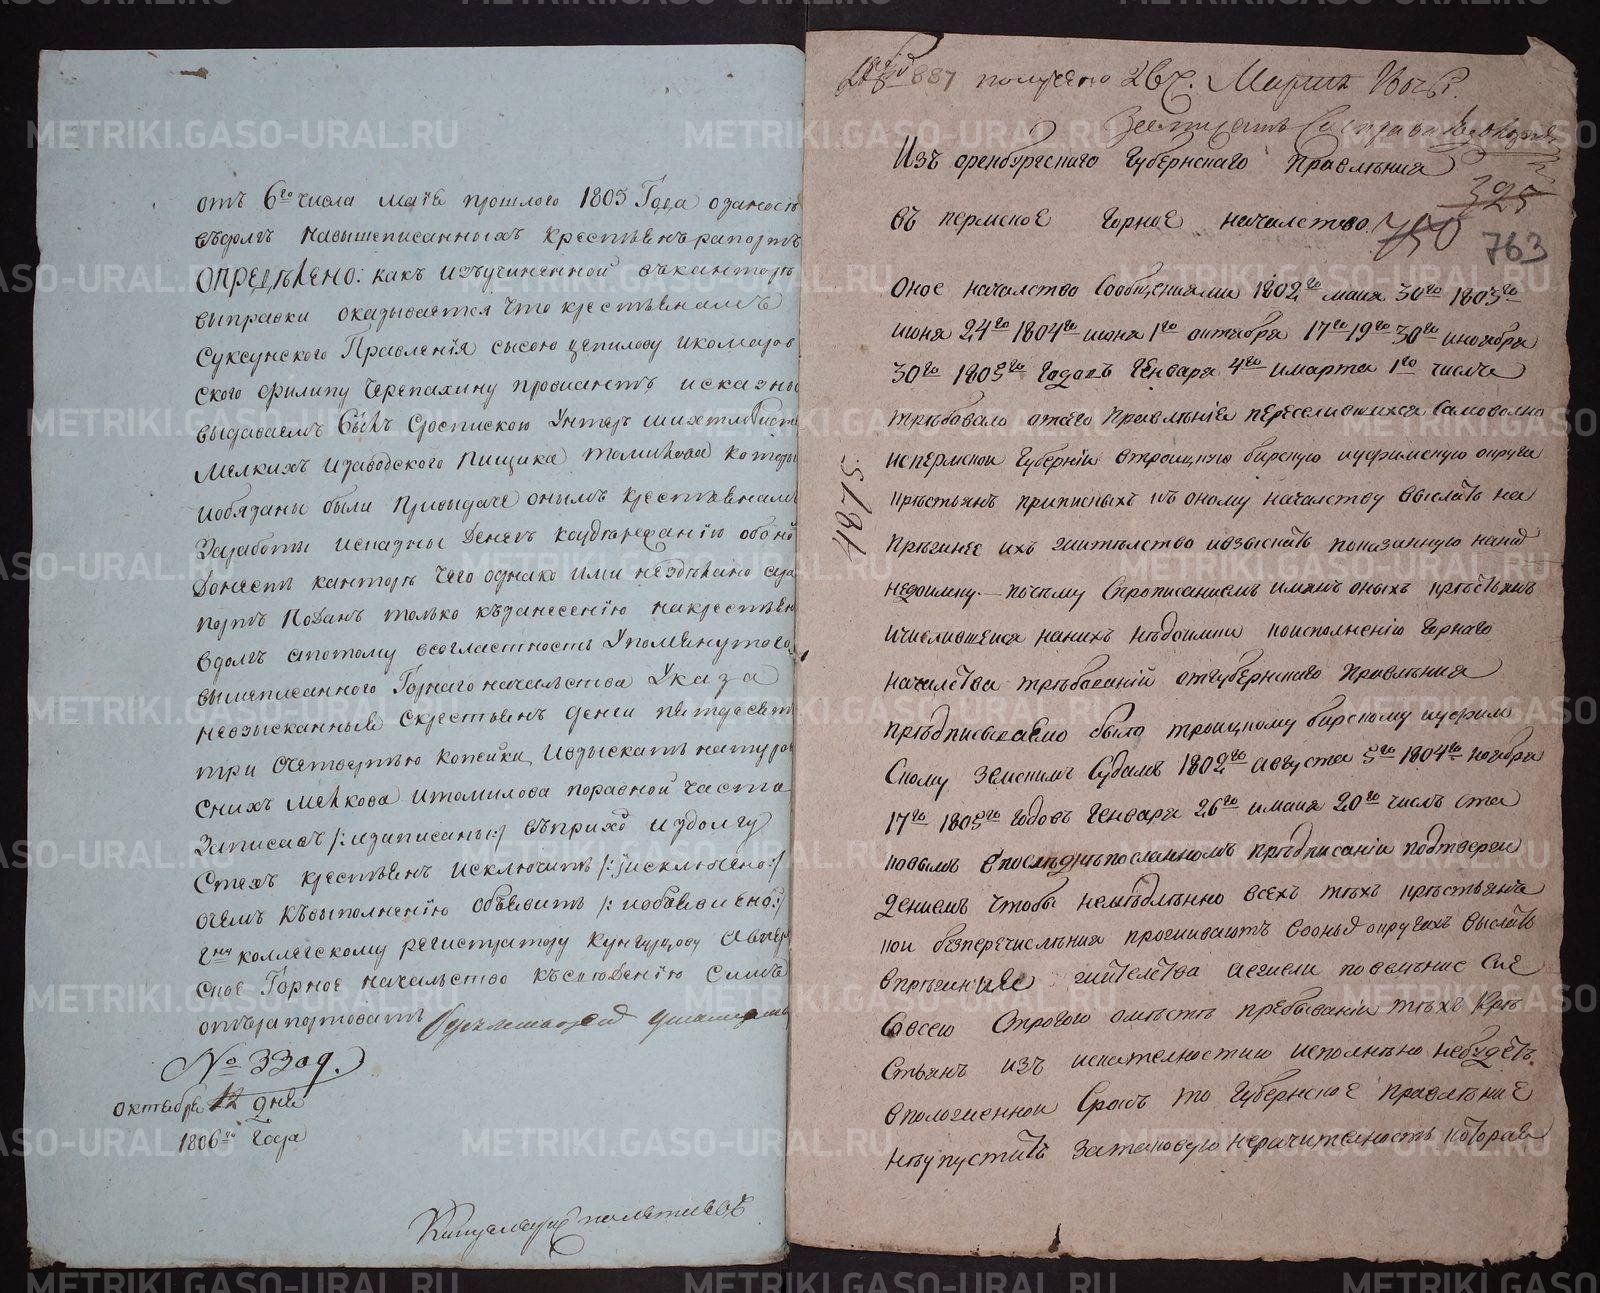 отъ 6го числа маія прошлого 1805 Года
въдолгъ навышеписанныхъ крестьянъ рапортъ
ОПРЕДѢЛЕНО: какъ изъучиненной въканторѣ
выправки оказывается что крестьянамъ
Суксунского Правленія сысою цепилову икомаров
ского филипу Черепахину провиантъ исказны
выдаваемъ былъ сроспискою Унтеръ шихтмейсте
Мелкихъ изаводского Пищика томилова которы
иобязаны были Привыдаче онымъ крестьянамъ
Заработы исказны Денегъ
Донести канторѣ чего однако ими нездѣлано ара
портъ Поданъ только къзанесенію накрестьян
вдолгъ апотому всогластность Упомянутого
вышеписанного Горнаго начальства Указа
невзысканные скрестьянъ денги пятдесятъ
три счетвертью копейки, Извзыскать
снихъ Мелкова итомилова поравной части
Записавъ /:изаписаны:/ въприходъ издолгу
Стехъ крестьянъ исключить /:иисключено:/
очемъ къвыполнению объявить /:иобъявлено:/
Гну коллегскому регистратору Кунгурцову Авперм
ское Горное начальство късвѣдению Симъ
отърапортовать
№ 3309.
октября 12 дня
1806го Года
887 получено 26 ч. Марта 1806
Изъ оренбургскаго Губернскаго Правления
325
въ пермское горное началство.
750
763
Оное началство Сообщениями 1802го маия 30го 1803го
июня 24го 1804го июня 1го октября 17го 19го 30го иноября
30го 1805го годовъ Генваря 4го имарта 1го числъ
требовало отсего Правления переселившихся самоволно
испермской Губернии втроицкую бирскую иуфимскую округи
крестьянъ приписныхъ къ оному началству выслать на
прежнее ихъ жителство ивзыскать показанную наних
недоимку. – почему Спрописаниемъ имянъ оныхъ крестьянъ
ичислившейся наихъ недоимки поисполнению Горнаго
началства требований отгубернскаго Правления
предписывано было троицкому бирскому иуфим
Скому Земскимъ Судамъ 1802го августа 5го 1804го ноября
17го 1805го годовъ Генваря 26го имаия 20го числъ ста
ковымъ впоследнепосланномъ предписании подтверж
дениемъ чтобы немедленно всехъ техъ крестьянъ
кои безперечисления проживаютъ вооныхъ округахъ выслать
впрежние жителства аежели повеление Сие
Совсею Строгою омѣстѣ пребывания техъ Кре
Стьянъ изъ искателностию исполнено небудетъ
вположенной Срокъ то Губернское Правление
неупуститъ Затаковую нерачительность которая
4875.